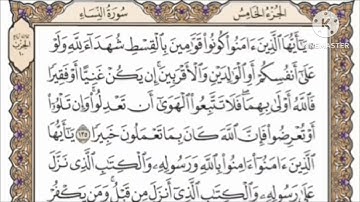 الجزء الخامس
سورة النساء
يَٰٓأَيُّهَا ٱلَّذِينَ ءَامَنُوا۟ كُونُوا۟ قَوَّٰمِينَ بِٱلْقِسْطِ شُهَدَآءَ لِلَّهِ وَلَوْ
عَلَىٰٓ أَنفُسِكُمْ أَوِ ٱلْوَٰلِدَيْنِ وَٱلْأَقْرَبِينَ ۚ إِن يَكُنْ غَنِيًّا أَوْ فَقِيرًا
فَٱللَّهُ أَوْلَىٰ بِهِمَا ۖ فَلَا تَتَّبِعُوا۟ ٱلْهَوَىٰٓ أَن تَعْدِلُوا۟ ۚ وَإِن تَلْوُۥٓا۟
أَوْ تُعْرِضُوا۟ فَإِنَّ ٱللَّهَ كَانَ بِمَا تَعْمَلُونَ خَبِيرًا ١٣٥ يَٰٓأَيُّهَا
ٱلَّذِينَ ءَامَنُوٓا۟ ءَامِنُوا۟ بِٱللَّهِ وَرَسُولِهِۦ وَٱلْكِتَٰبِ ٱلَّذِى نَزَّلَ
عَلَىٰ رَسُولِهِۦ وَٱلْكِتَٰبِ ٱلَّذِىٓ أَنزَلَ مِن قَبْلُ ۚ وَمَن يَكْفُرْ